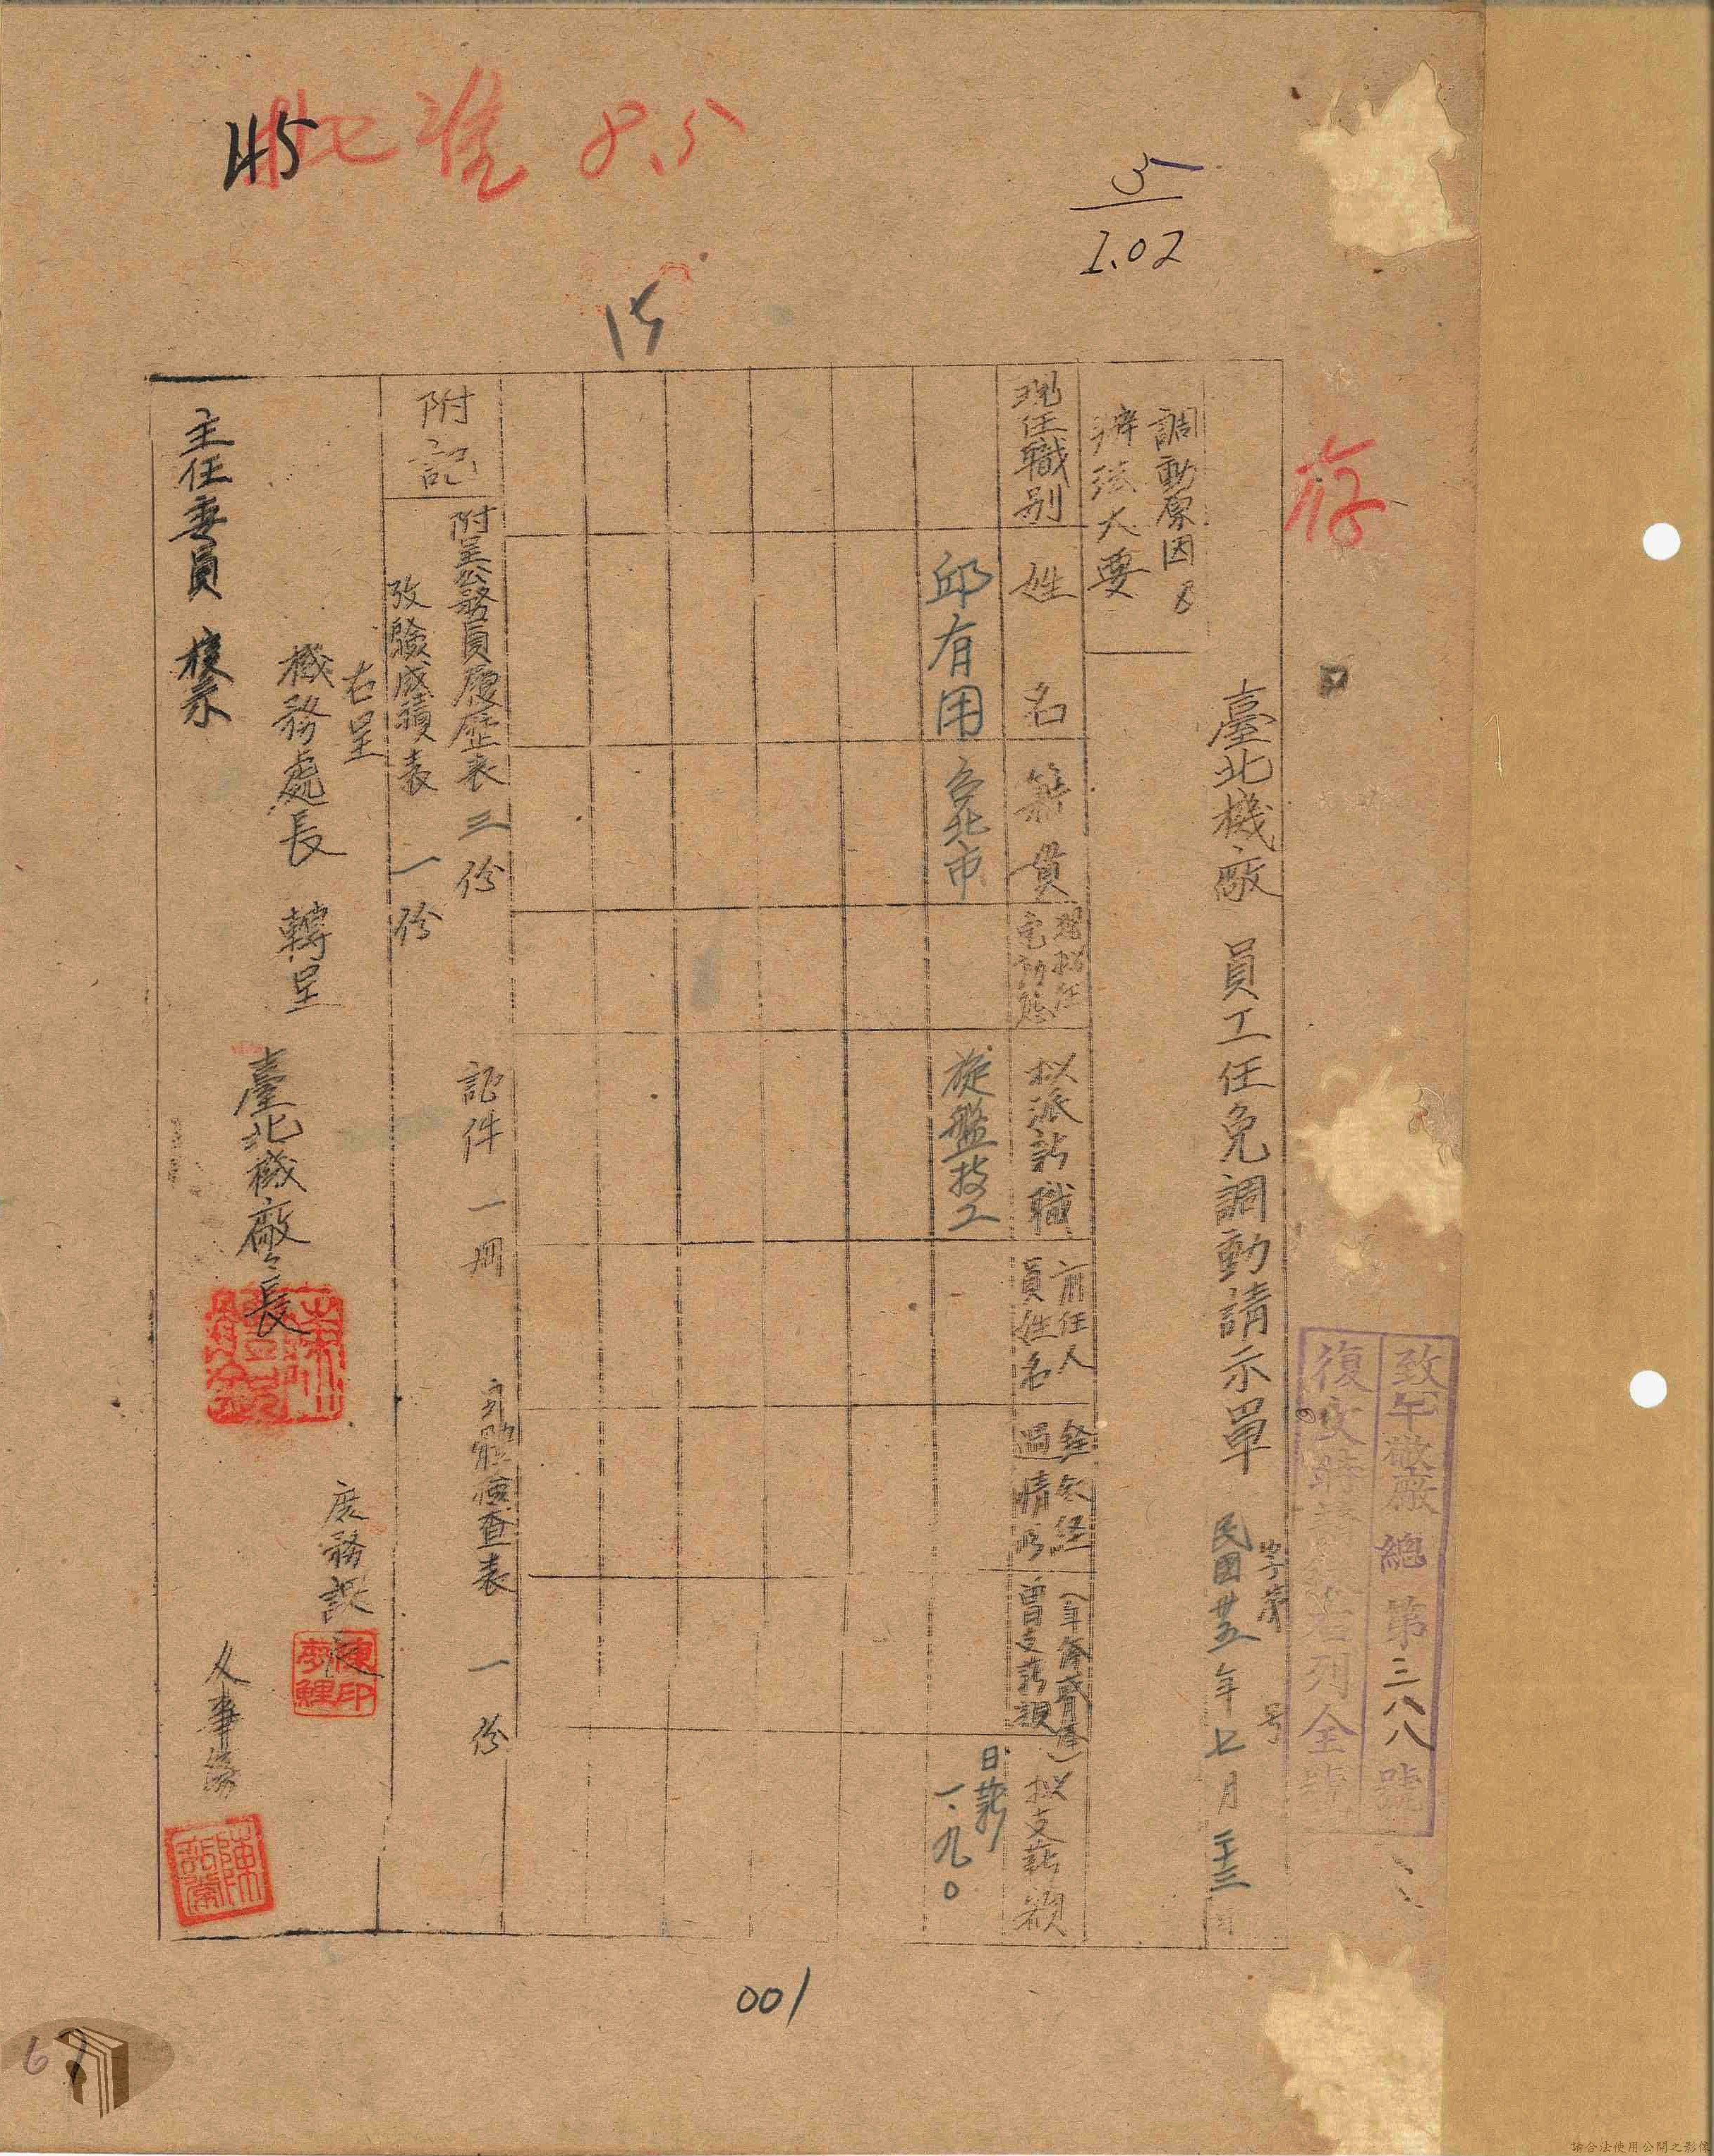 批准 8.5
145
3
1.02
15
存
致午機廠總第三八八號
復文時請 右列全號
臺北機廠 員工任免調動請示單 民國卅五年七月二十三日
字第 号
調動原因&
辦法大要
現任職别
姓名
籍貫
現擬任
免動態
拟派新職
前任人
員姓名
銓叙経
過情形
(年俸或月俸)
曾支薪額
拟支薪額
邱有用
台北市
旋盤技工
日薪
一.九〇
附記
附呈公務員履歷表 三份 証件 一册 身體檢查表 一份
攷驗成績表 一份
右呈
機務處長 轉呈
主任委員 核示
臺北機廠々長
庶務課長
陳印
人事係
001
67
請合法使用公開之影像